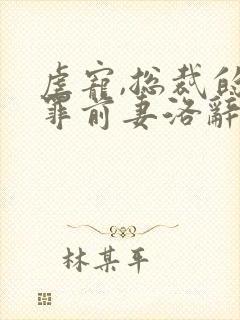 虐寵,總裁的
罪前妻洛辭
林某平